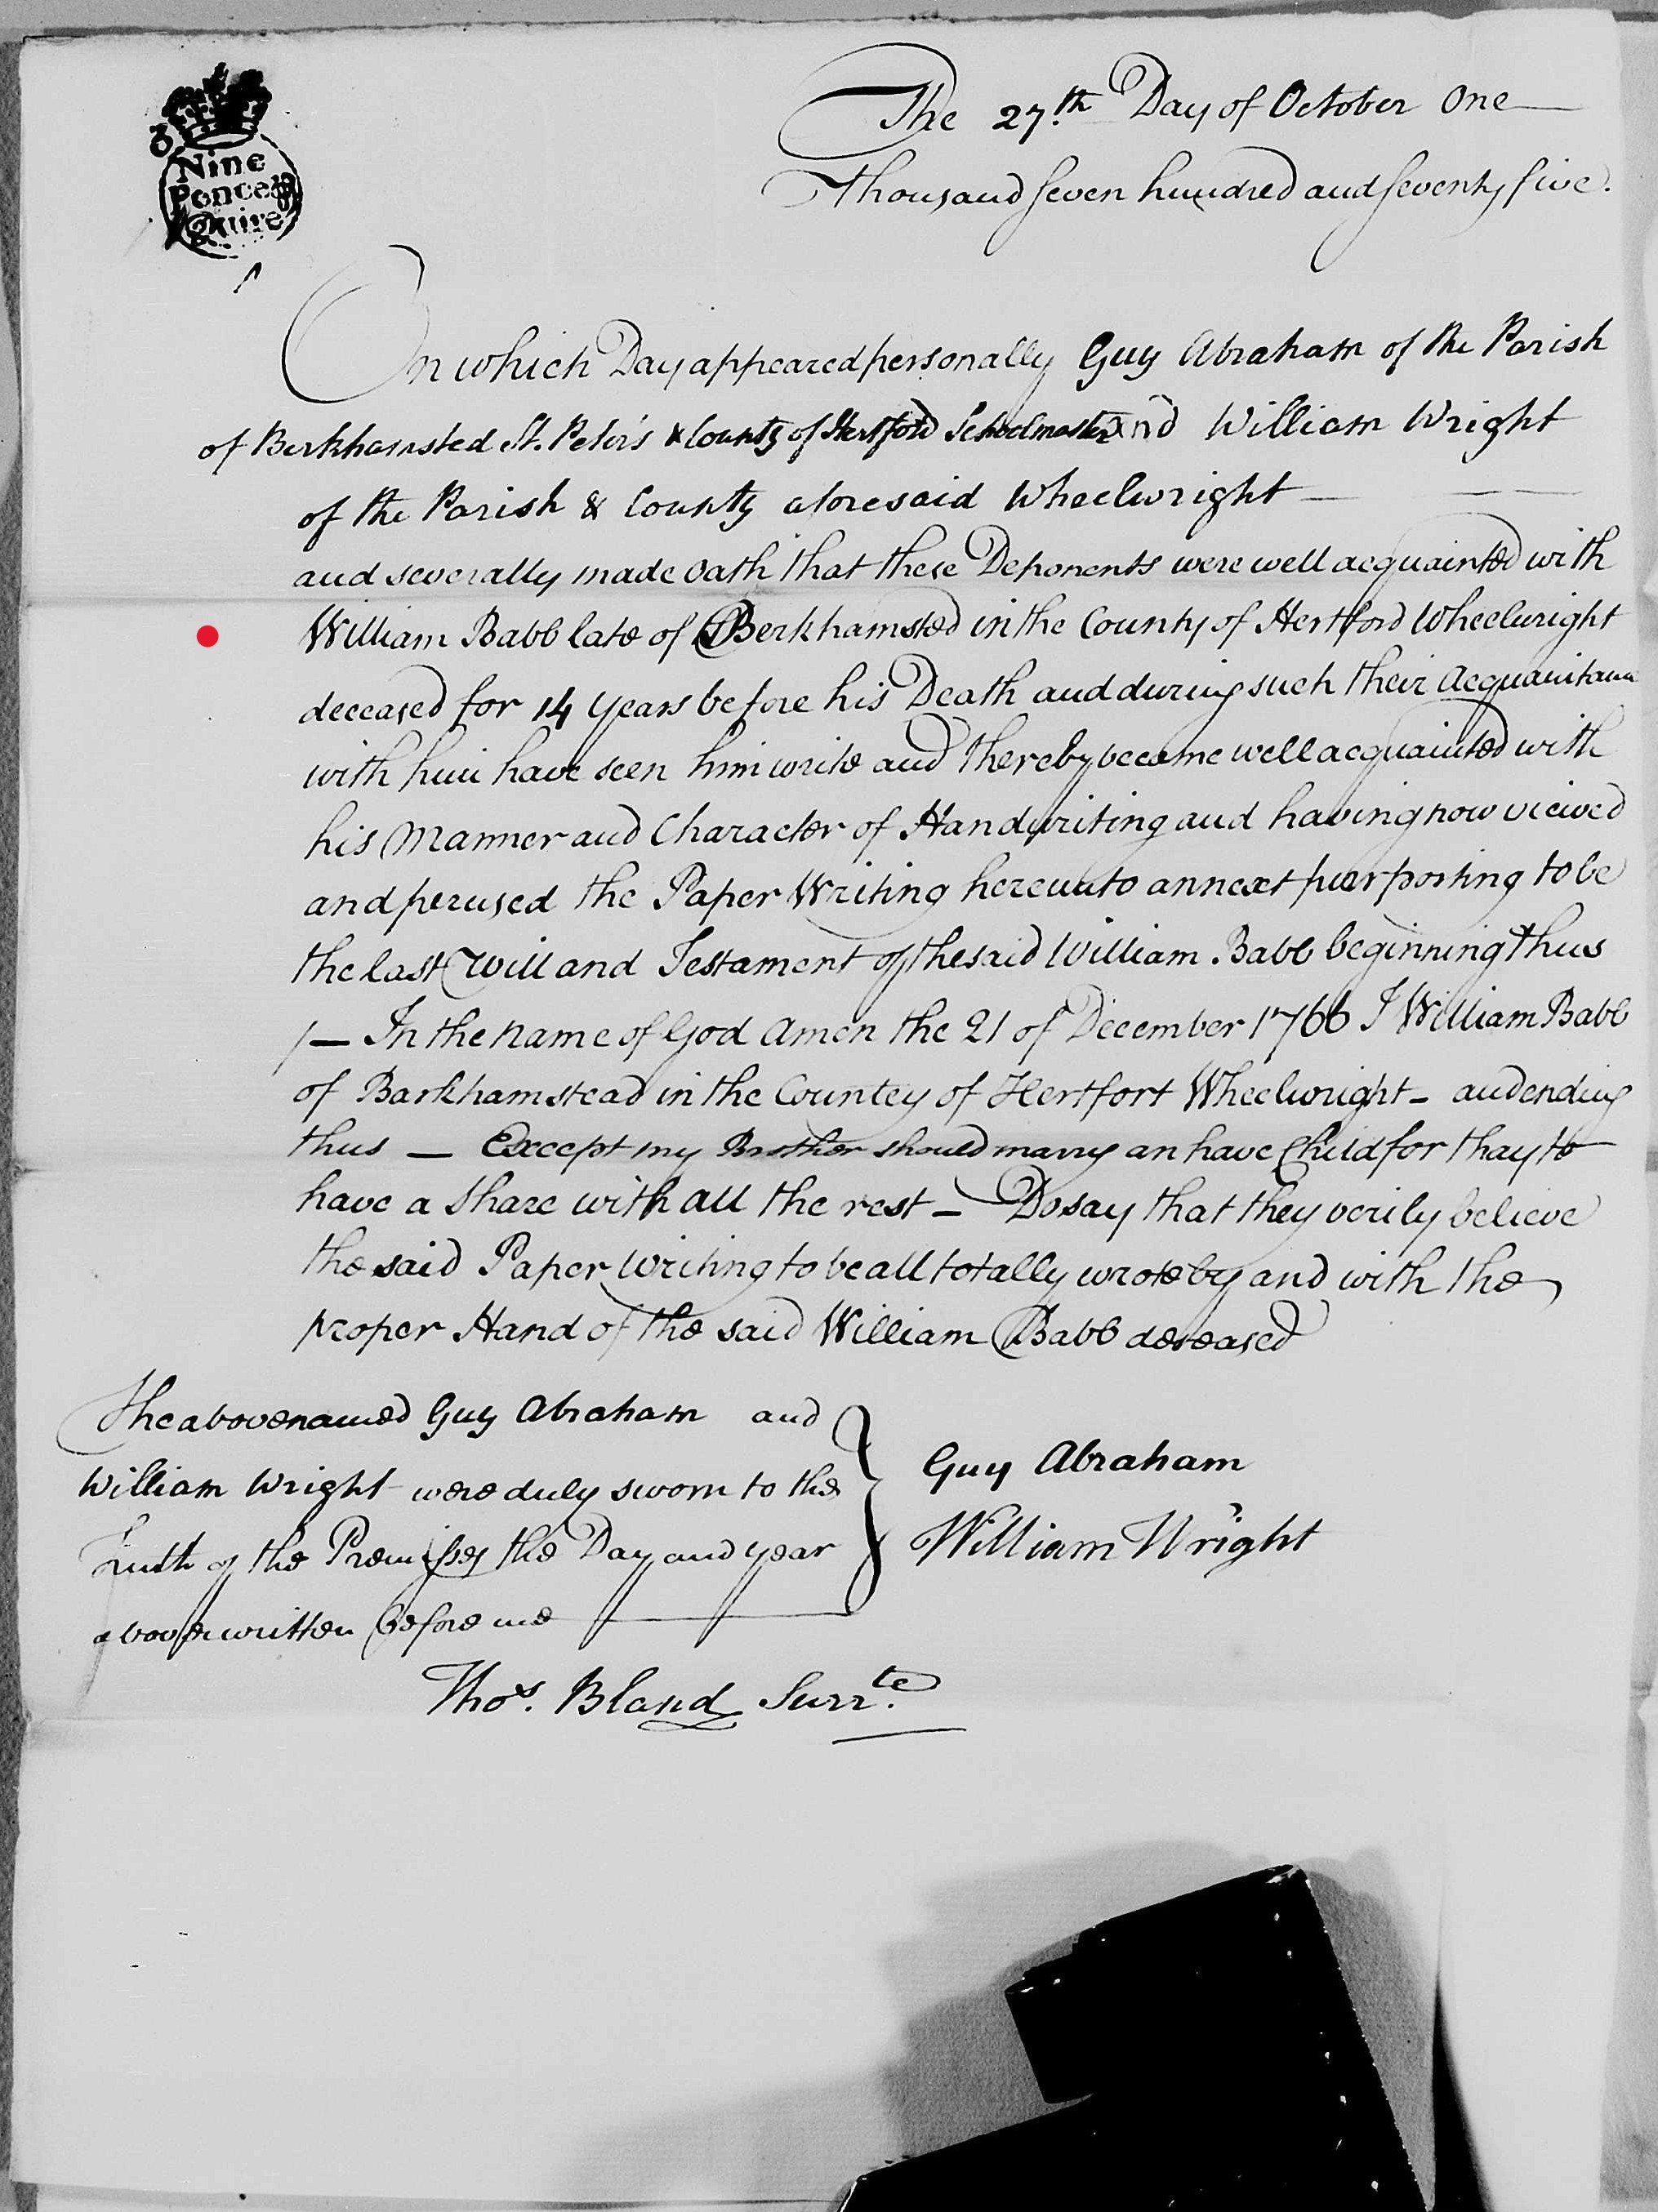 Nine
Pence
Quire
The 27.th Day of October One
thousand seven hundred and seventy five.
On which Day appeared personally Guy Abraham of the Parish
of Berkhamsted St. Peter's & County of Hertford Schoolmaster and William Wright
of the Parish & County aforesaid Wheelwright
and severally made oath that these Deponents were well acquainted with
William Babb late of Berkhamsted in the County of Hertford Wheelwright
deceased for 14 years before his Death and during such their Acquaintance
with him have seen him write and thereby became well acquainted with
his Manner and Character of Handwriting and having now viewed
and perused the Paper Writing hereunto annext purporting to be
the last Will and Testament of the said William Babb beginning thus
/— In the name of God Amen the 21 of December 1766 I William Babb
of Barkhamstead in the Countey of Hertfort Wheelwright – and ending
thus — Except my Brother should marry an have Child for thay to
have a share with all the rest – Do say that they verily believe
the said Paper Writing to be all totally wrote by and with the
proper Hand of the said William Babb deceased
The abovenamed Guy Abraham and
William Wright were duly sworn to the
Truth of the Premisses the Day and year
above written before me
Guy Abraham
William Wright
Thos. Bland Surr.te